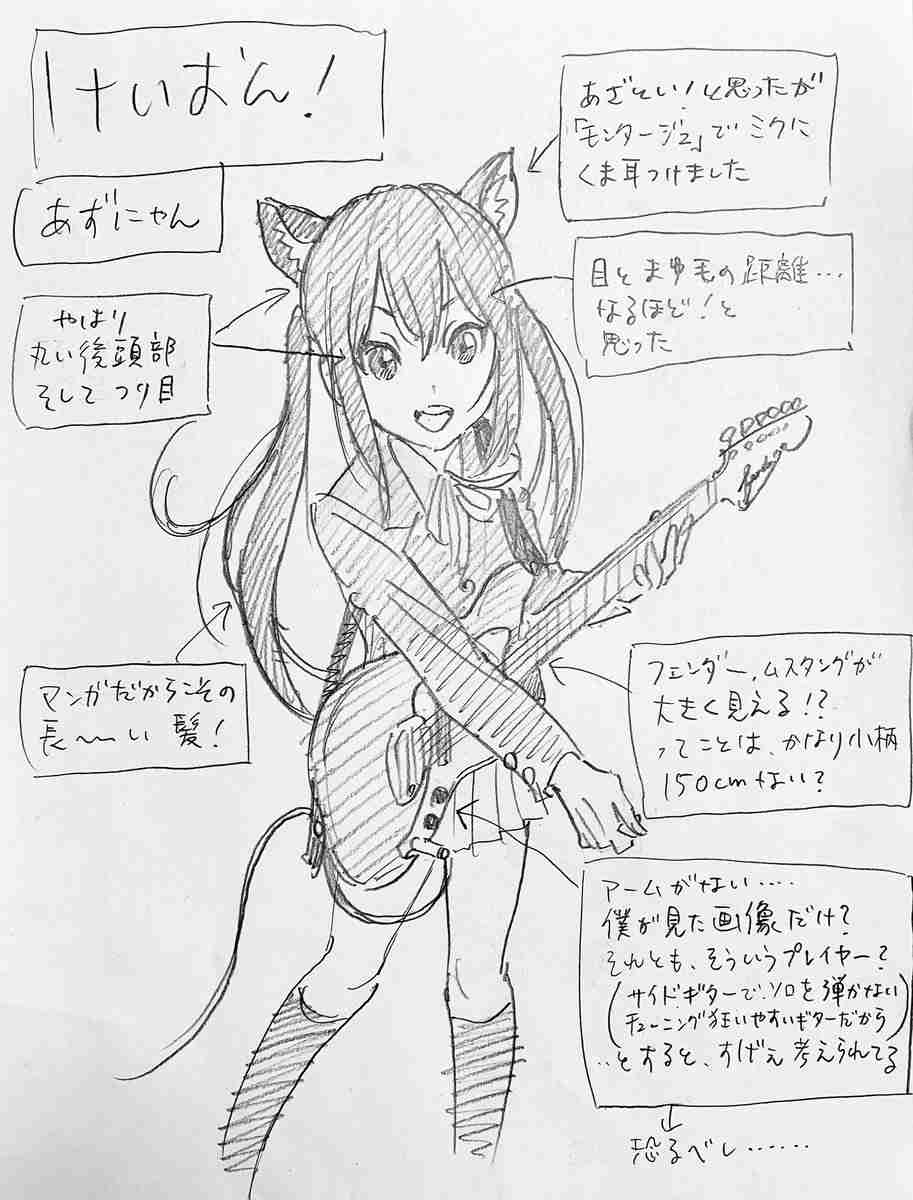 けいおん!
あずにゃん
あざとい!と思ったが
「モンタージュ」でミクに
くま耳つけました
目とまゆ毛の距離…
なるほど!と
思った
やはり
丸い後頭部
そしてつり目
マンガだからこその
長〜い髪!
フェンダー、ムスタングが
大きく見える!?
ってことは、かなり小柄
150cmない?
アームがない….
僕が見た画像だけ?
それとも、そういうプレイヤー?
(サイドギターで、ソロを弾かない
チューニング狂いやすいギターだから)
..とすると、すげぇ考えられてる
恐るべし……